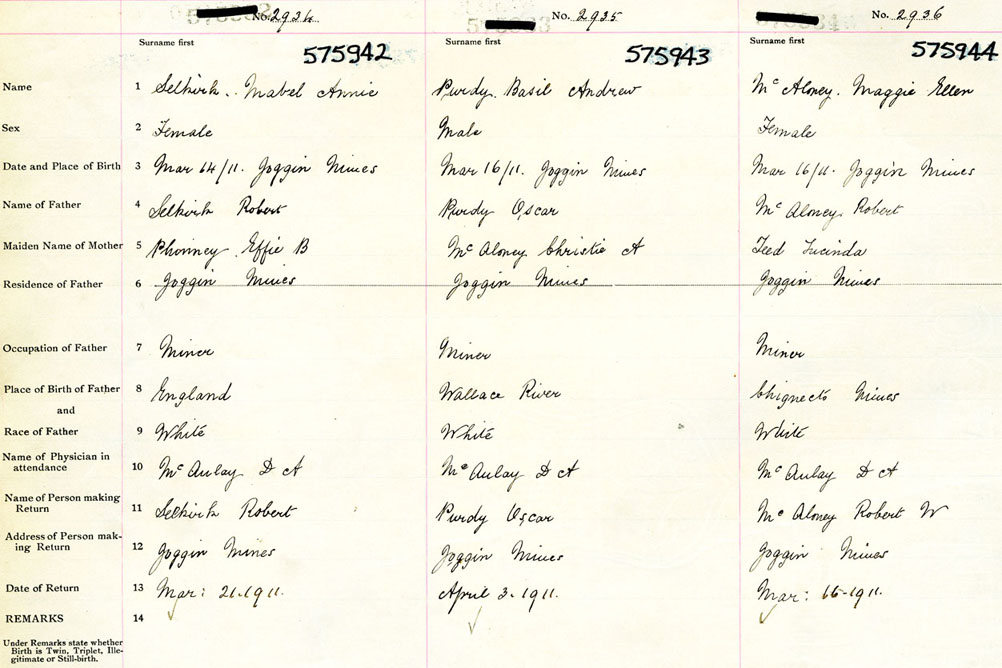 No. 2934 No. 2935 No. 2936
Surname first Surname first Surname first
575942 575943 575944
Name 1 Selkirk. Mabel Annie Purdy. Basil Andrew Mc Aloney. Maggie Ellen
Sex 2 Female Male Female
Date and Place of Birth 3 Mar 14/11. Joggin Mines Mar 16/11. Joggin Mines Mar 16/11. Joggin Mines
Name of Father 4 Selkirk Robert Purdy Oscar Mc Aloney Robert
Maiden Name of Mother 5 Phinney Effie B Mc Aloney Christie A Teed Lucinda
Residence of Father 6 Joggin Mines Joggin Mines Joggin Mines
Occupation of Father 7 Miner Miner Miner
Place of Birth of Father 8 England Wallace River Chignecto Mines
and
Race of Father 9 White White White
Name of Physician in
attendance 10 Mc Aulay D A Mc Aulay D A Mc Aulay D A
Name of Person making
Return 11 Selkirk Robert Purdy Oscar Mc Aloney Robert W
Address of Person mak-
ing Return 12 Joggin Mines Joggin Mines Joggin Mines
Date of Return 13 Mar: 21-1911. April 3-1911. Mar: 16-1911.
REMARKS 14
Under Remarks state whether
Birth is Twin, Triplet, Ille-
gitimate or Still-birth.